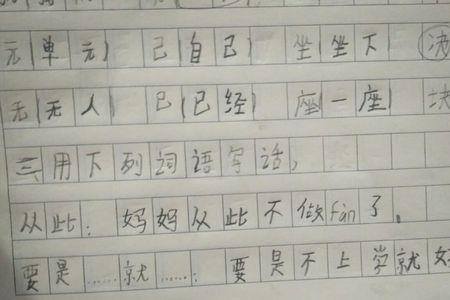 元(单元) 己(自己) 坐(坐下)
无(无人) 已(已经) 座(一座) 块
三用下列词语写话,
从此: 妈妈从此不做fàn了。
要是……就……: 要是不上学就好